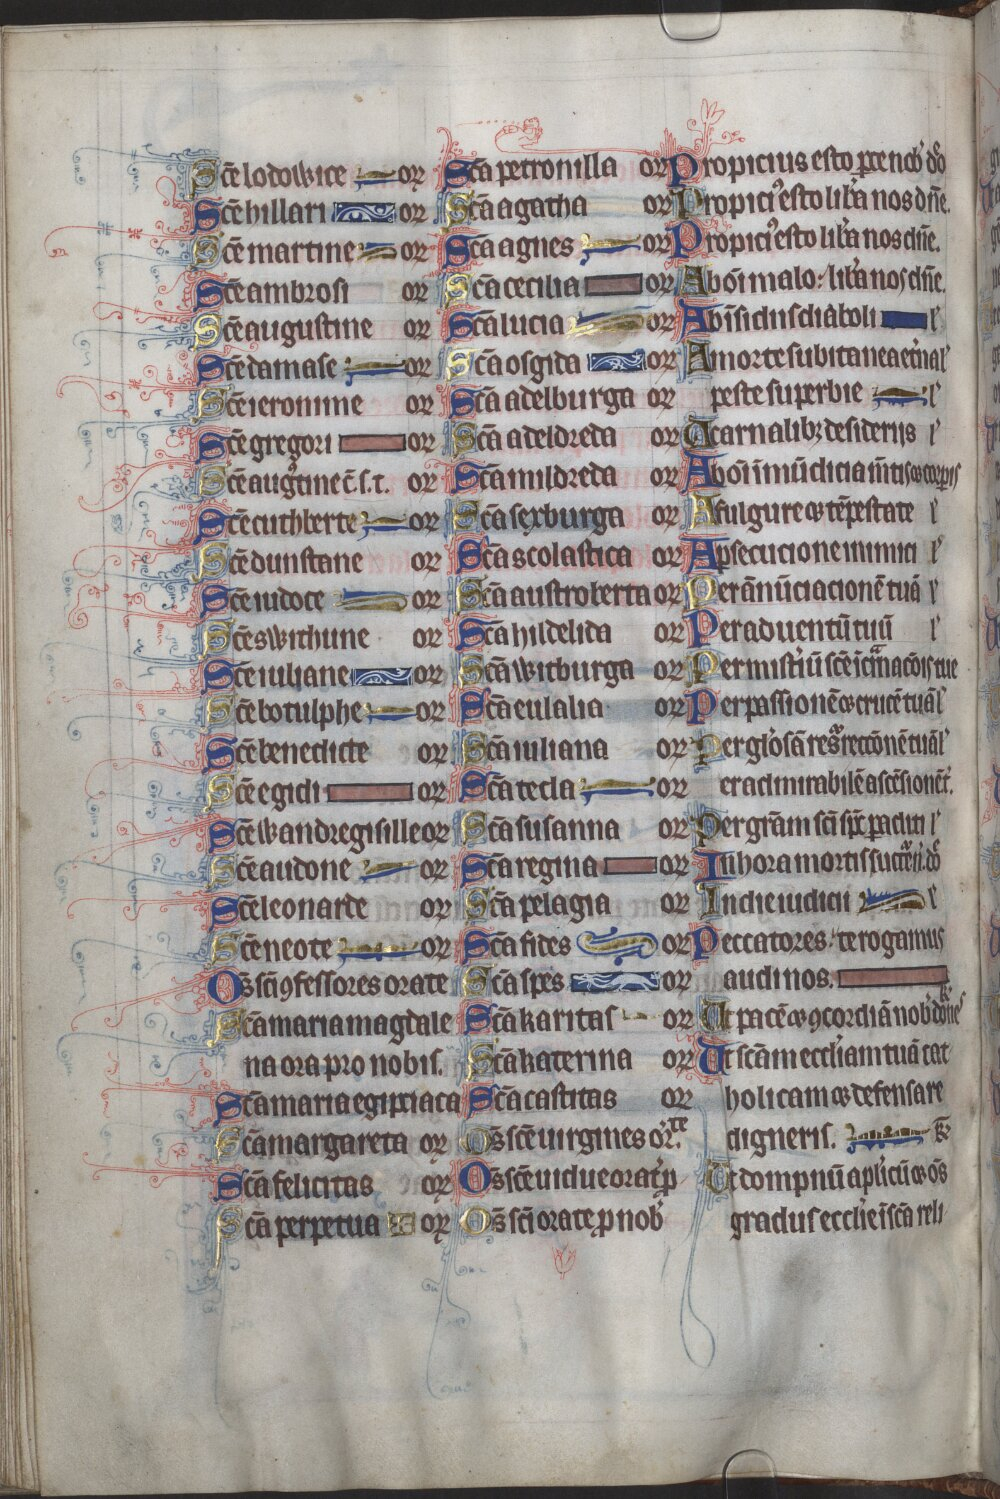 Sc̄e lodowice orꝫ
Sc̄e hillari orꝫ
Sc̄e martine orꝫ
Sc̄e ambrosi orꝫ
Sc̄e augustine orꝫ
Sc̄e damase orꝫ
Sc̄e ieronime orꝫ
Sc̄e gregori orꝫ
Sc̄e augtine c̄.s.t. orꝫ
Sc̄e cuthberte orꝫ
Sc̄e dunstane orꝫ
Sc̄e iudoce orꝫ
Sc̄e swithune orꝫ
Sc̄e iuliane orꝫ
Sc̄e botulphe orꝫ
Sc̄e benedicte orꝫ
Sc̄e egidi orꝫ
Sc̄e wandregisille orꝫ
Sc̄e audone orꝫ
Sc̄e leonarde orꝫ
Sc̄e neote orꝫ
Om̄s sc̄i ꝯfessores orate
Sc̄a maria magdale
na ora pro nobis.
Sc̄a maria egipciaca
Sc̄a margareta orꝫ
Sc̄a felicitas orꝫ
Sc̄a perpetua orꝫ
Sc̄a petronilla orꝫ
Sc̄a agatha orꝫ
Sc̄a agnes orꝫ
Sc̄a cecilia orꝫ
Sc̄a lucia orꝫ
Sc̄a osgida orꝫ
Sc̄a adelburga orꝫ
Sc̄a adeldreda orꝫ
Sc̄a mildreda orꝫ
Sc̄a sexburga orꝫ
Sc̄a scolastica orꝫ
Sc̄a austroberta orꝫ
Sc̄a hildelida orꝫ
Sc̄a witburga orꝫ
Sc̄a eulalia orꝫ
Sc̄a iuliana orꝫ
Sc̄a tecla orꝫ
Sc̄a susanna orꝫ
Sc̄a regina orꝫ
Sc̄a pelagia orꝫ
Sc̄a fides orꝫ
Sc̄a spes orꝫ
Sc̄a karitas orꝫ
Sc̄a katerina orꝫ
Sc̄a castitas orꝫ
Om̄s sc̄e uirgines or̄te
Om̄s sc̄e uidue orat ꝑ
Om̄s sc̄i orate ꝑ nob
Propicius esto ꝑce nob dn̄e
Propici' esto lib'a nos dn̄e.
Propici' esto lib'a nos dn̄e.
Ab om̄i malo: lib'a nos dn̄e.
Ab īsidiis diaboli l'
A morte subitanea et'nal'
peste superbie l'
A carnalibꝫ desideriis l'
Ab om̄i īmūdicia m̄tis ⁊ corꝑis
A fulgure ⁊ tēpestate l'
A ꝑsecucione inimici l'
Per ānūciacionē tuā l'
Per aduentū tuū l'
Per mist'iū sc̄e īcarnac̄ois tue
Per passionē ⁊ crucē tuā l'
Per gl'osā resʳrecc̄onē tuā l'
er admirabilē ascēsionē t'.
Per grām sc̄i sp̄c paracliti l'
In hora mortis succ're n. dn̄e
In die iudicii l'
Peccatores: te rogamus
audi nos.
Ut pacē ⁊ ꝯcordiā nob dones
Ut sc̄am eccl'iam tuā cat
holicam ⁊ defensare
digneris.
Ut dompnū ap'licū ⁊ om̄s
gradus eccl'ie ī sc̄a reli